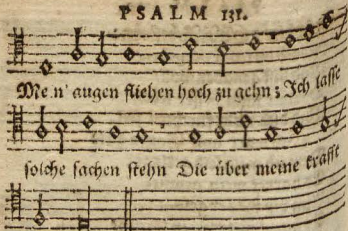 PSALM 131.
Me n' augen fliehen hoch zu gehn; Ich lasse
solche sachen stehn Die über meine krafft